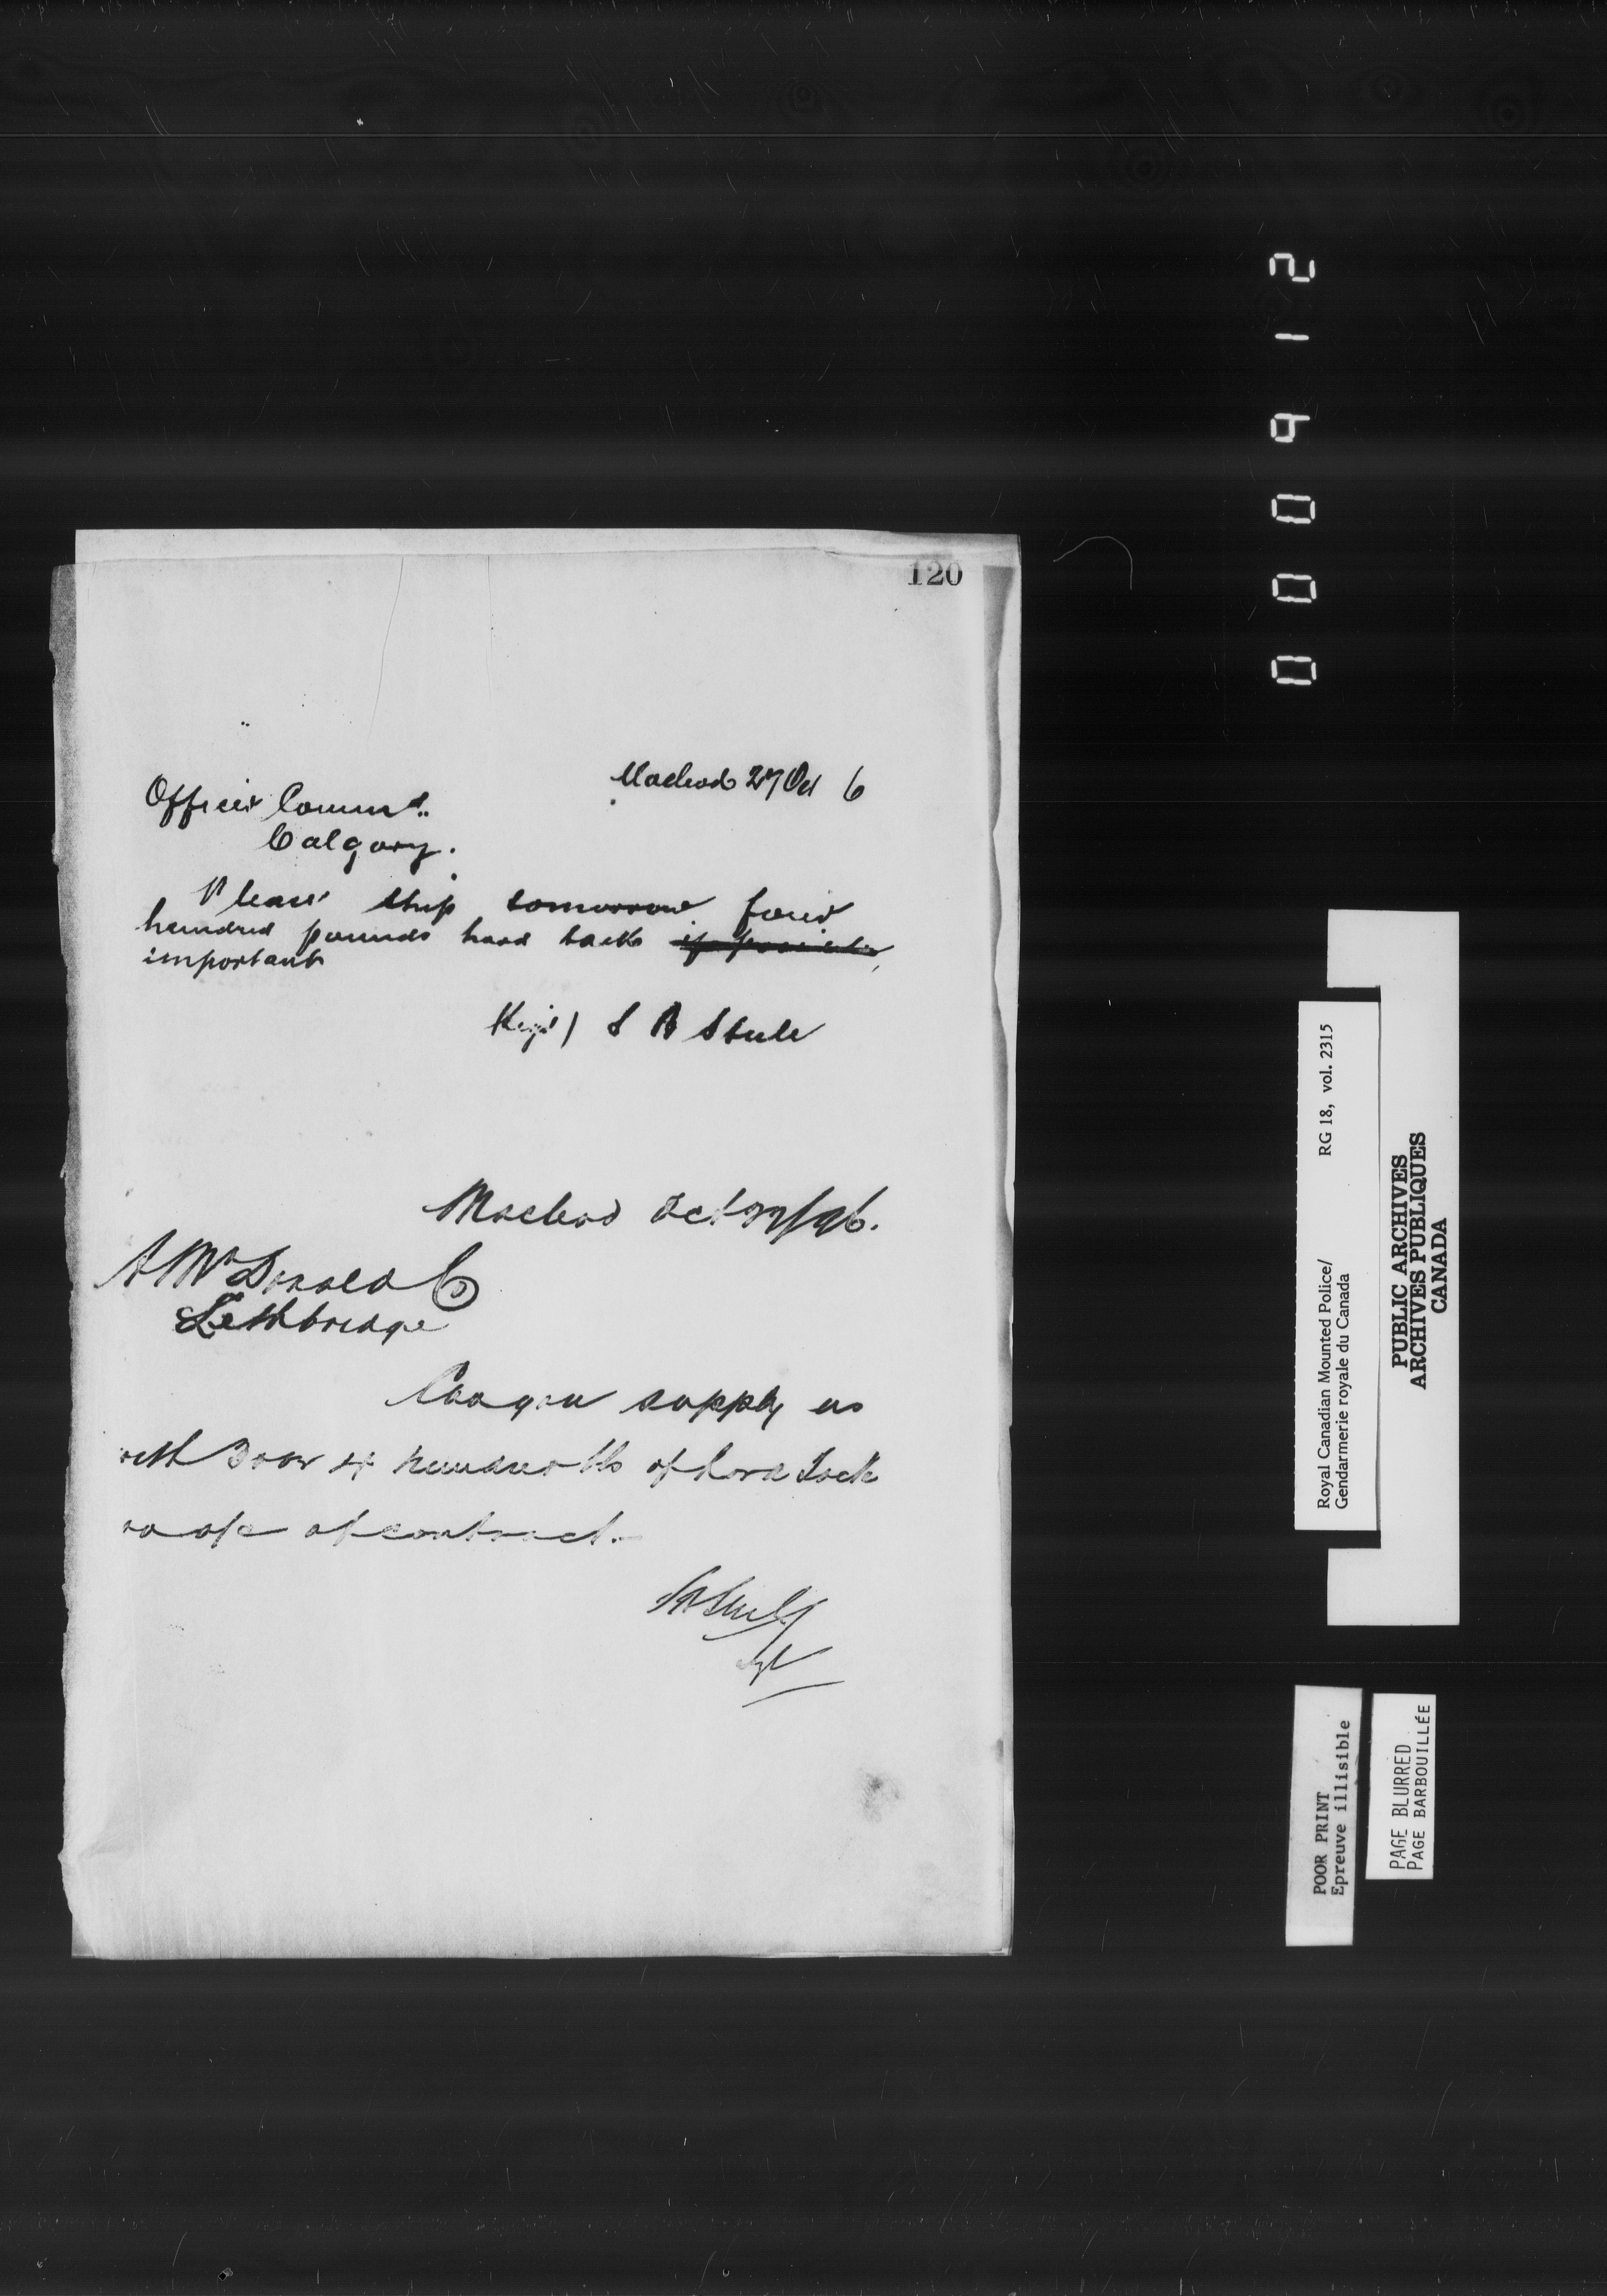 120
Macleod 27 Oct 6
Officer Commd..
Calgary.
Please ship tomorrow four
hundred pounds hard tack
important
S B Steele
Macleod Oct 27/96.
A McDonald Co
Lethbridge
Can you supply us
with four hundred lbs of hard tack
of contract.
SB Steele
000912
Royal Canadian Mounted Police/ RG 18, vol. 2315
Gendarmerie royale du Canada
PUBLIC ARCHIVES
ARCHIVES PUBLIQUES
CANADA
POOR PRINT
Epreuve illisible
PAGE BLURRED
PAGE BARBOUILLÉE